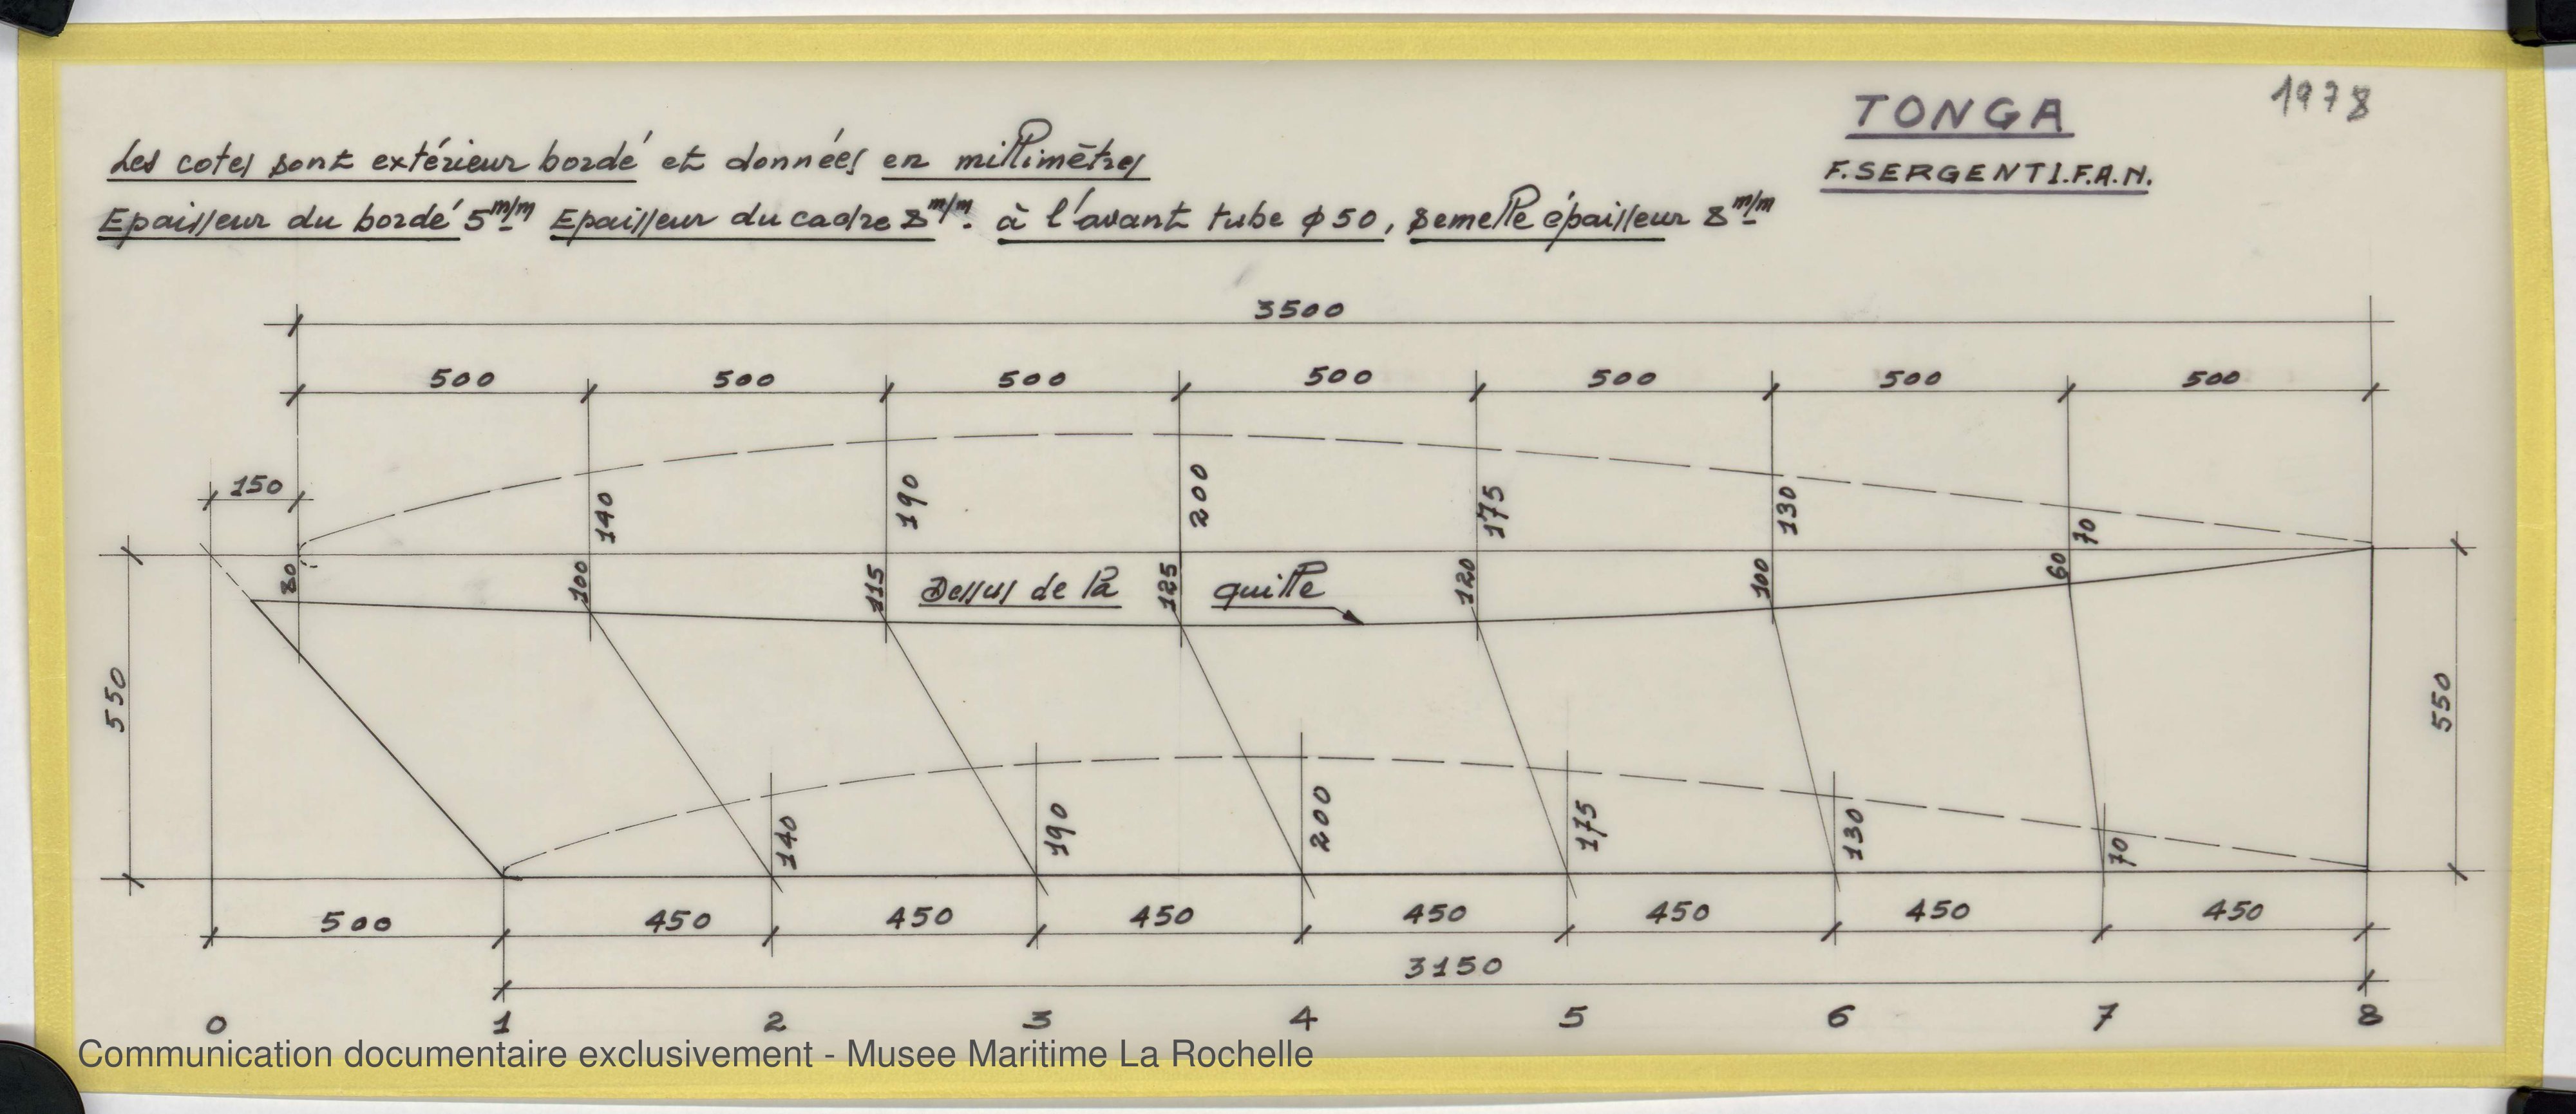 TONGA
1978
F. SERGENT I.F.A.N.
Les cotes sont extérieur bordé et données en millimètres
Epaisseur du bordé 5 m/m Epaisseur du cadre 8 m/m. à l'avant tube φ 50, semelle épaisseur 8 m/m
3500
500 500 500 500 500 500 500
150
140 190 200 175 130 70
80 100 115 125 120 100 60
Dessus de la quille
550 550
140 190 200 175 130 70
500 450 450 450 450 450 450 450
3150
0 1 2 3 4 5 6 7 8
Communication documentaire exclusivement - Musee Maritime La Rochelle